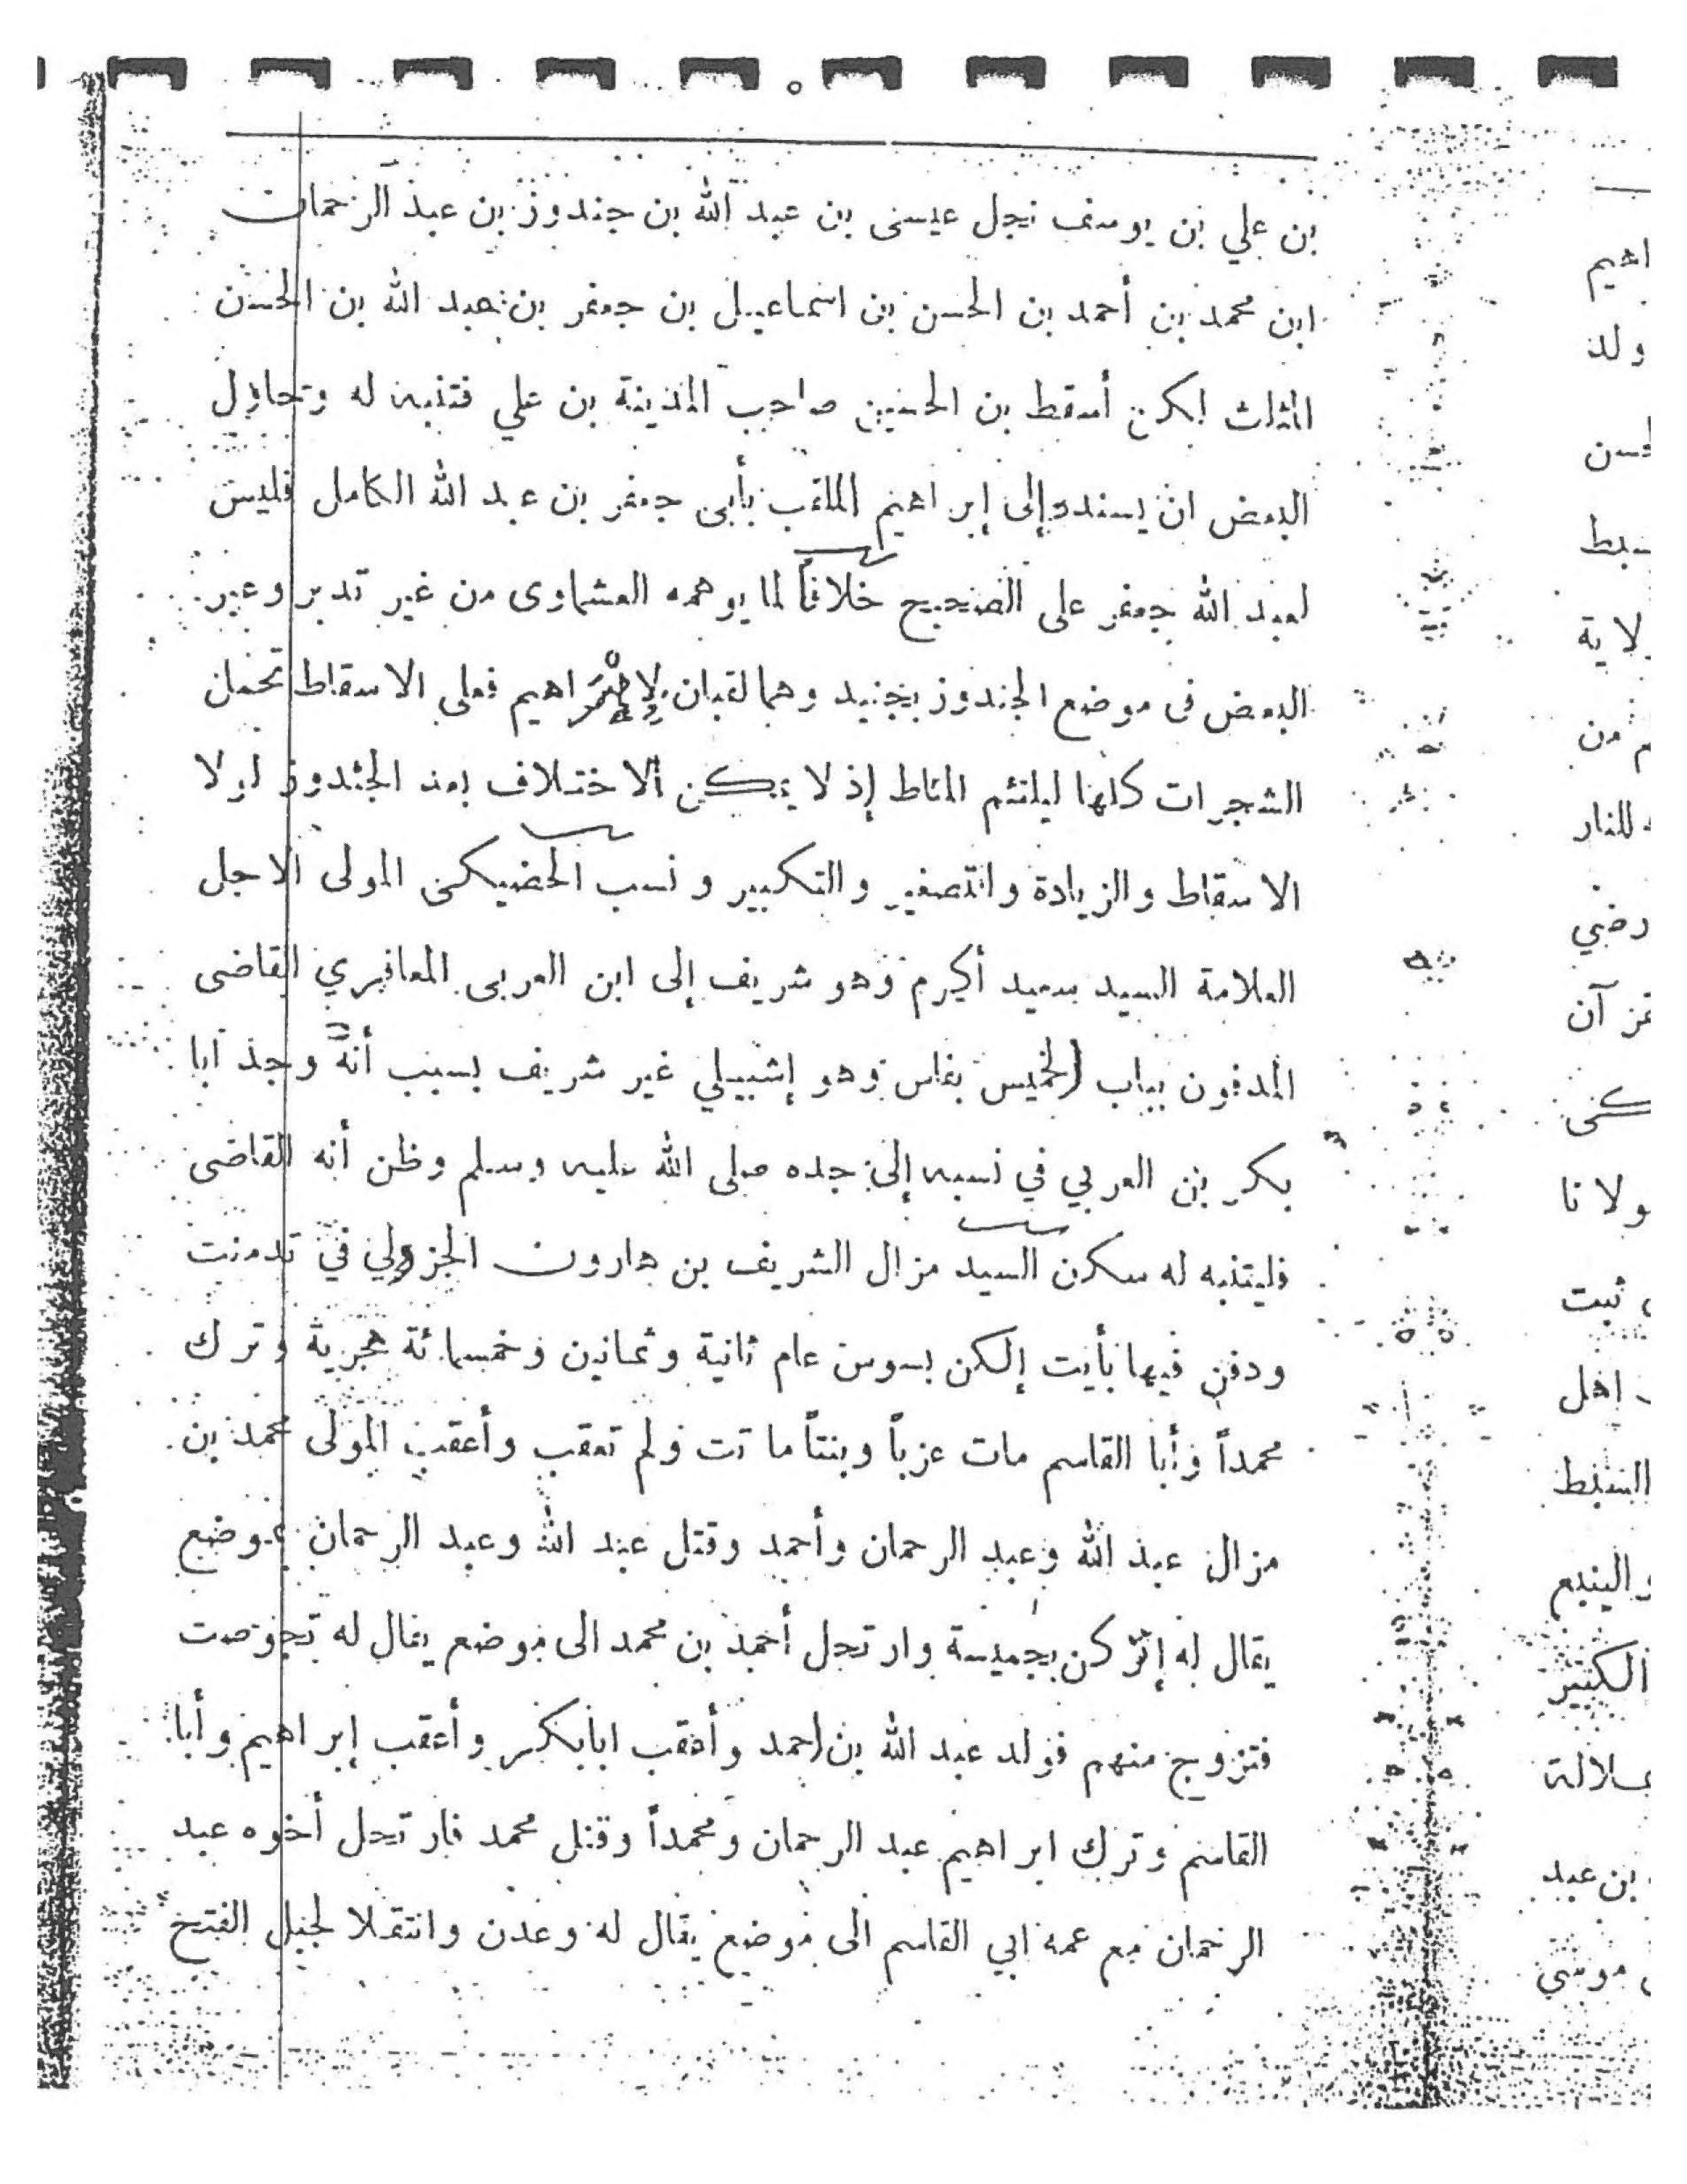 بن علي بن يوسف نجل عيسى بن عبد الله بن جندوز بن عبد الرحمان
ابن محمد بن أحمد بن الحسن بن اسماعيل بن جعفر بن عبد الله بن الحسن
المثلث لكن أسقط بن الحسين صاحب المدينة بن علي فتنبه له وتحاول
البعض ان يسنده إلى إبراهيم الملقب بأبى جعفر بن عبد الله الكامل فليس
لعبد الله جعفر على الصحيح خلافاً لما يوهمه العشماوى من غير تدبر وعبر
البعض فى موضع الجندوز بجنيد وهما لقبان لإبراهيم فعلى الاسقاط تحمل
الشجرات كلها ليلتئم المناط إذ لا يمكن الاختلاف بعد الجندوز لولا
الاسقاط والزيادة والتصغير والتكبير ونسب الحضيكى المولى الاجل
العلامة السيد سعيد أكرم وهو شريف إلى ابن العربى المعافري القاضى
المدفون بباب الخميس بفاس وهو إشبيلي غير شريف بسبب أنه وجد أبا
بكر بن العربي في نسبه إلى جده صلى الله عليه وسلم وظن أنه القاضى
فليتنبه له سكن السيد مزال الشريف بن هارون الجزولي في تدمنت
ودفن فيها بأيت إلكن بسوس عام ثانية وثمانين وخمسمائة هجرية وترك
محمداً وأبا القاسم مات عزباً وبنتاً ماتت ولم تعقب وأعقب المولى محمد بن
مزال عبد الله وعبد الرحمان وأحمد وقتل عبد الله وعبد الرحمان بموضع
يقال له إنركن بجميسة وارتحل أحمد بن محمد الى موضع يقال له تجوصت
فتزوج منهم فولد عبد الله بن احمد وأعقب ابابكر وأعقب إبراهيم وأبا
القاسم وترك ابراهيم عبد الرحمان ومحمداً وقتل محمد فارتحل أخوه عبد
الرحمان مع عمه ابي القاسم الى موضع يقال له وعدن وانتقلا لجبل الفتح
اهيم
ولد
لحسن
سبط
لاية
من
للنار
رضي
آن
كنى
ولانا
ثبت
اهل
السبط
والينبع
الكثير
سلالة
بن عبد
موسي